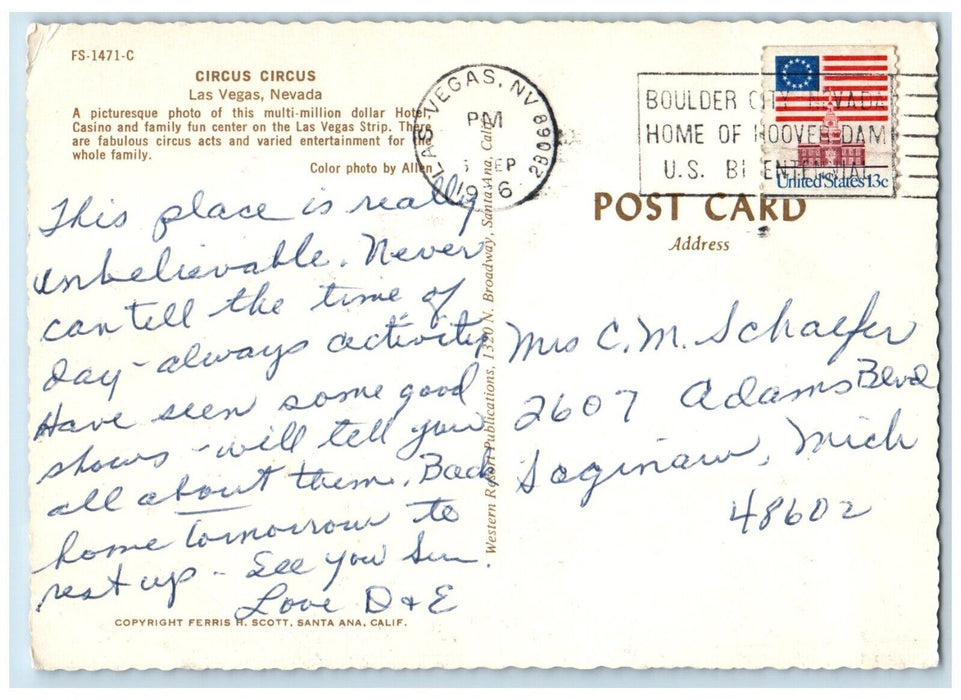 FS-1471-C
CIRCUS CIRCUS
Las Vegas, Nevada
A picturesque photo of this multi-million dollar Hotel,
Casino and family fun center on the Las Vegas Strip. There
are fabulous circus acts and varied entertainment for the
whole family.
Color photo by Allen
This place is really
unbelievable. Never
can tell the time of
day - always activity
Have seen some good
shows - will tell you
all about them. Back
home tomorrow to
rest up - See you Sun.
Love D + E
COPYRIGHT FERRIS H. SCOTT, SANTA ANA, CALIF.
Western Resort Publications, 1320 N. Broadway, Santa Ana, Calif.
LAS VEGAS, NV 890
PM
SEP
BOULDER CITY, NEVADA
HOME OF HOOVER DAM
U.S. BICENTENNIAL
United States 13c
POST CARD
Address
Mrs C. M. Schaefer
2607 Adams Blvd
Saginaw, Mich
48602